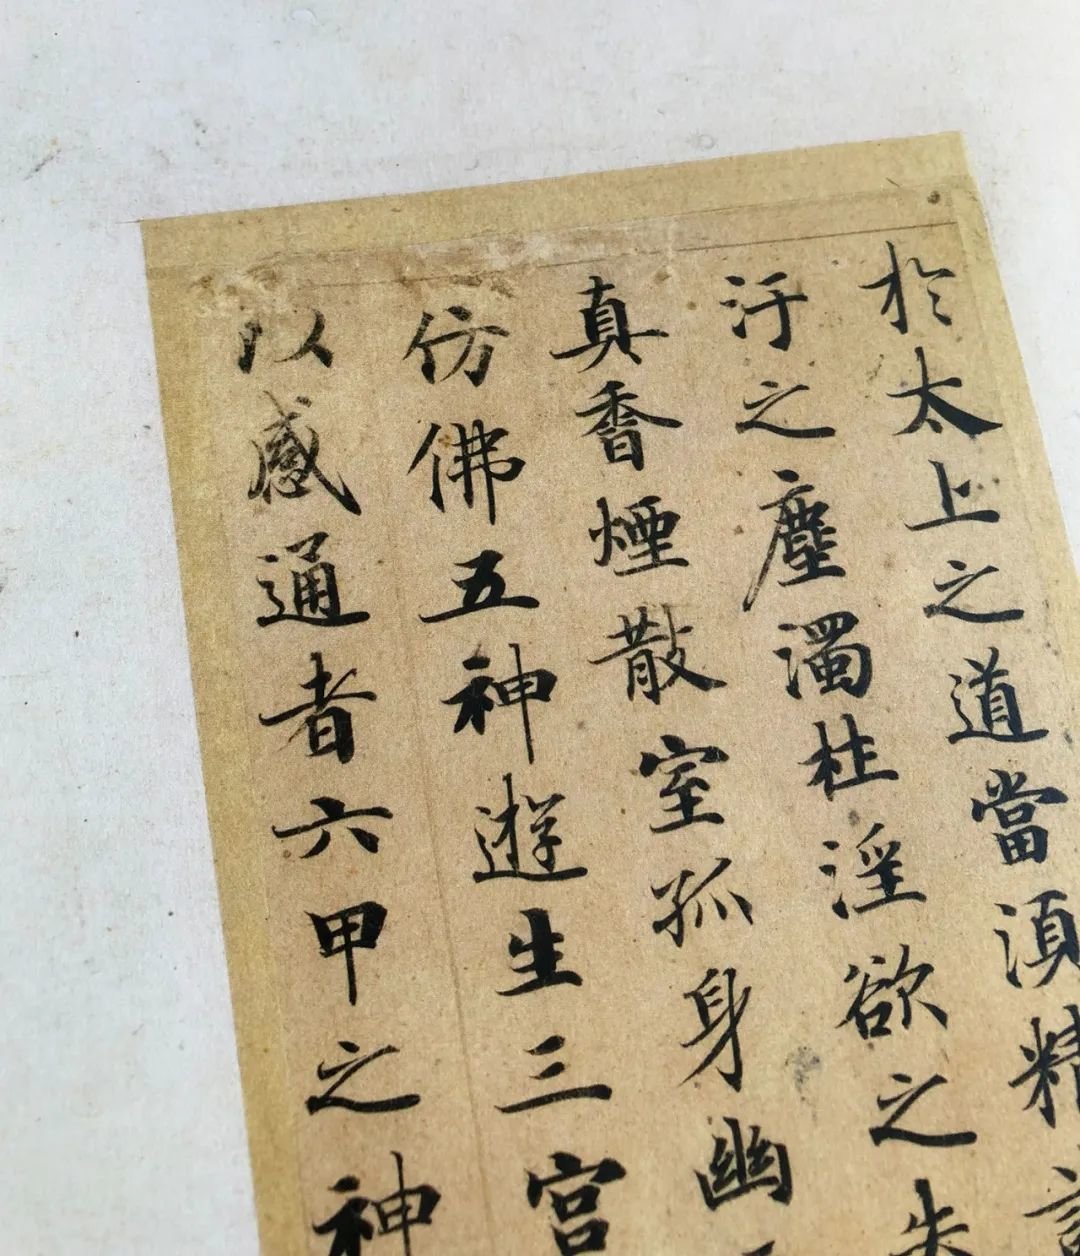 於太上之道當湏精
汙之塵濁杜淫欲之失
真香煙散室孤身幽
仿佛五神遊生三宫
以感通者六甲之神